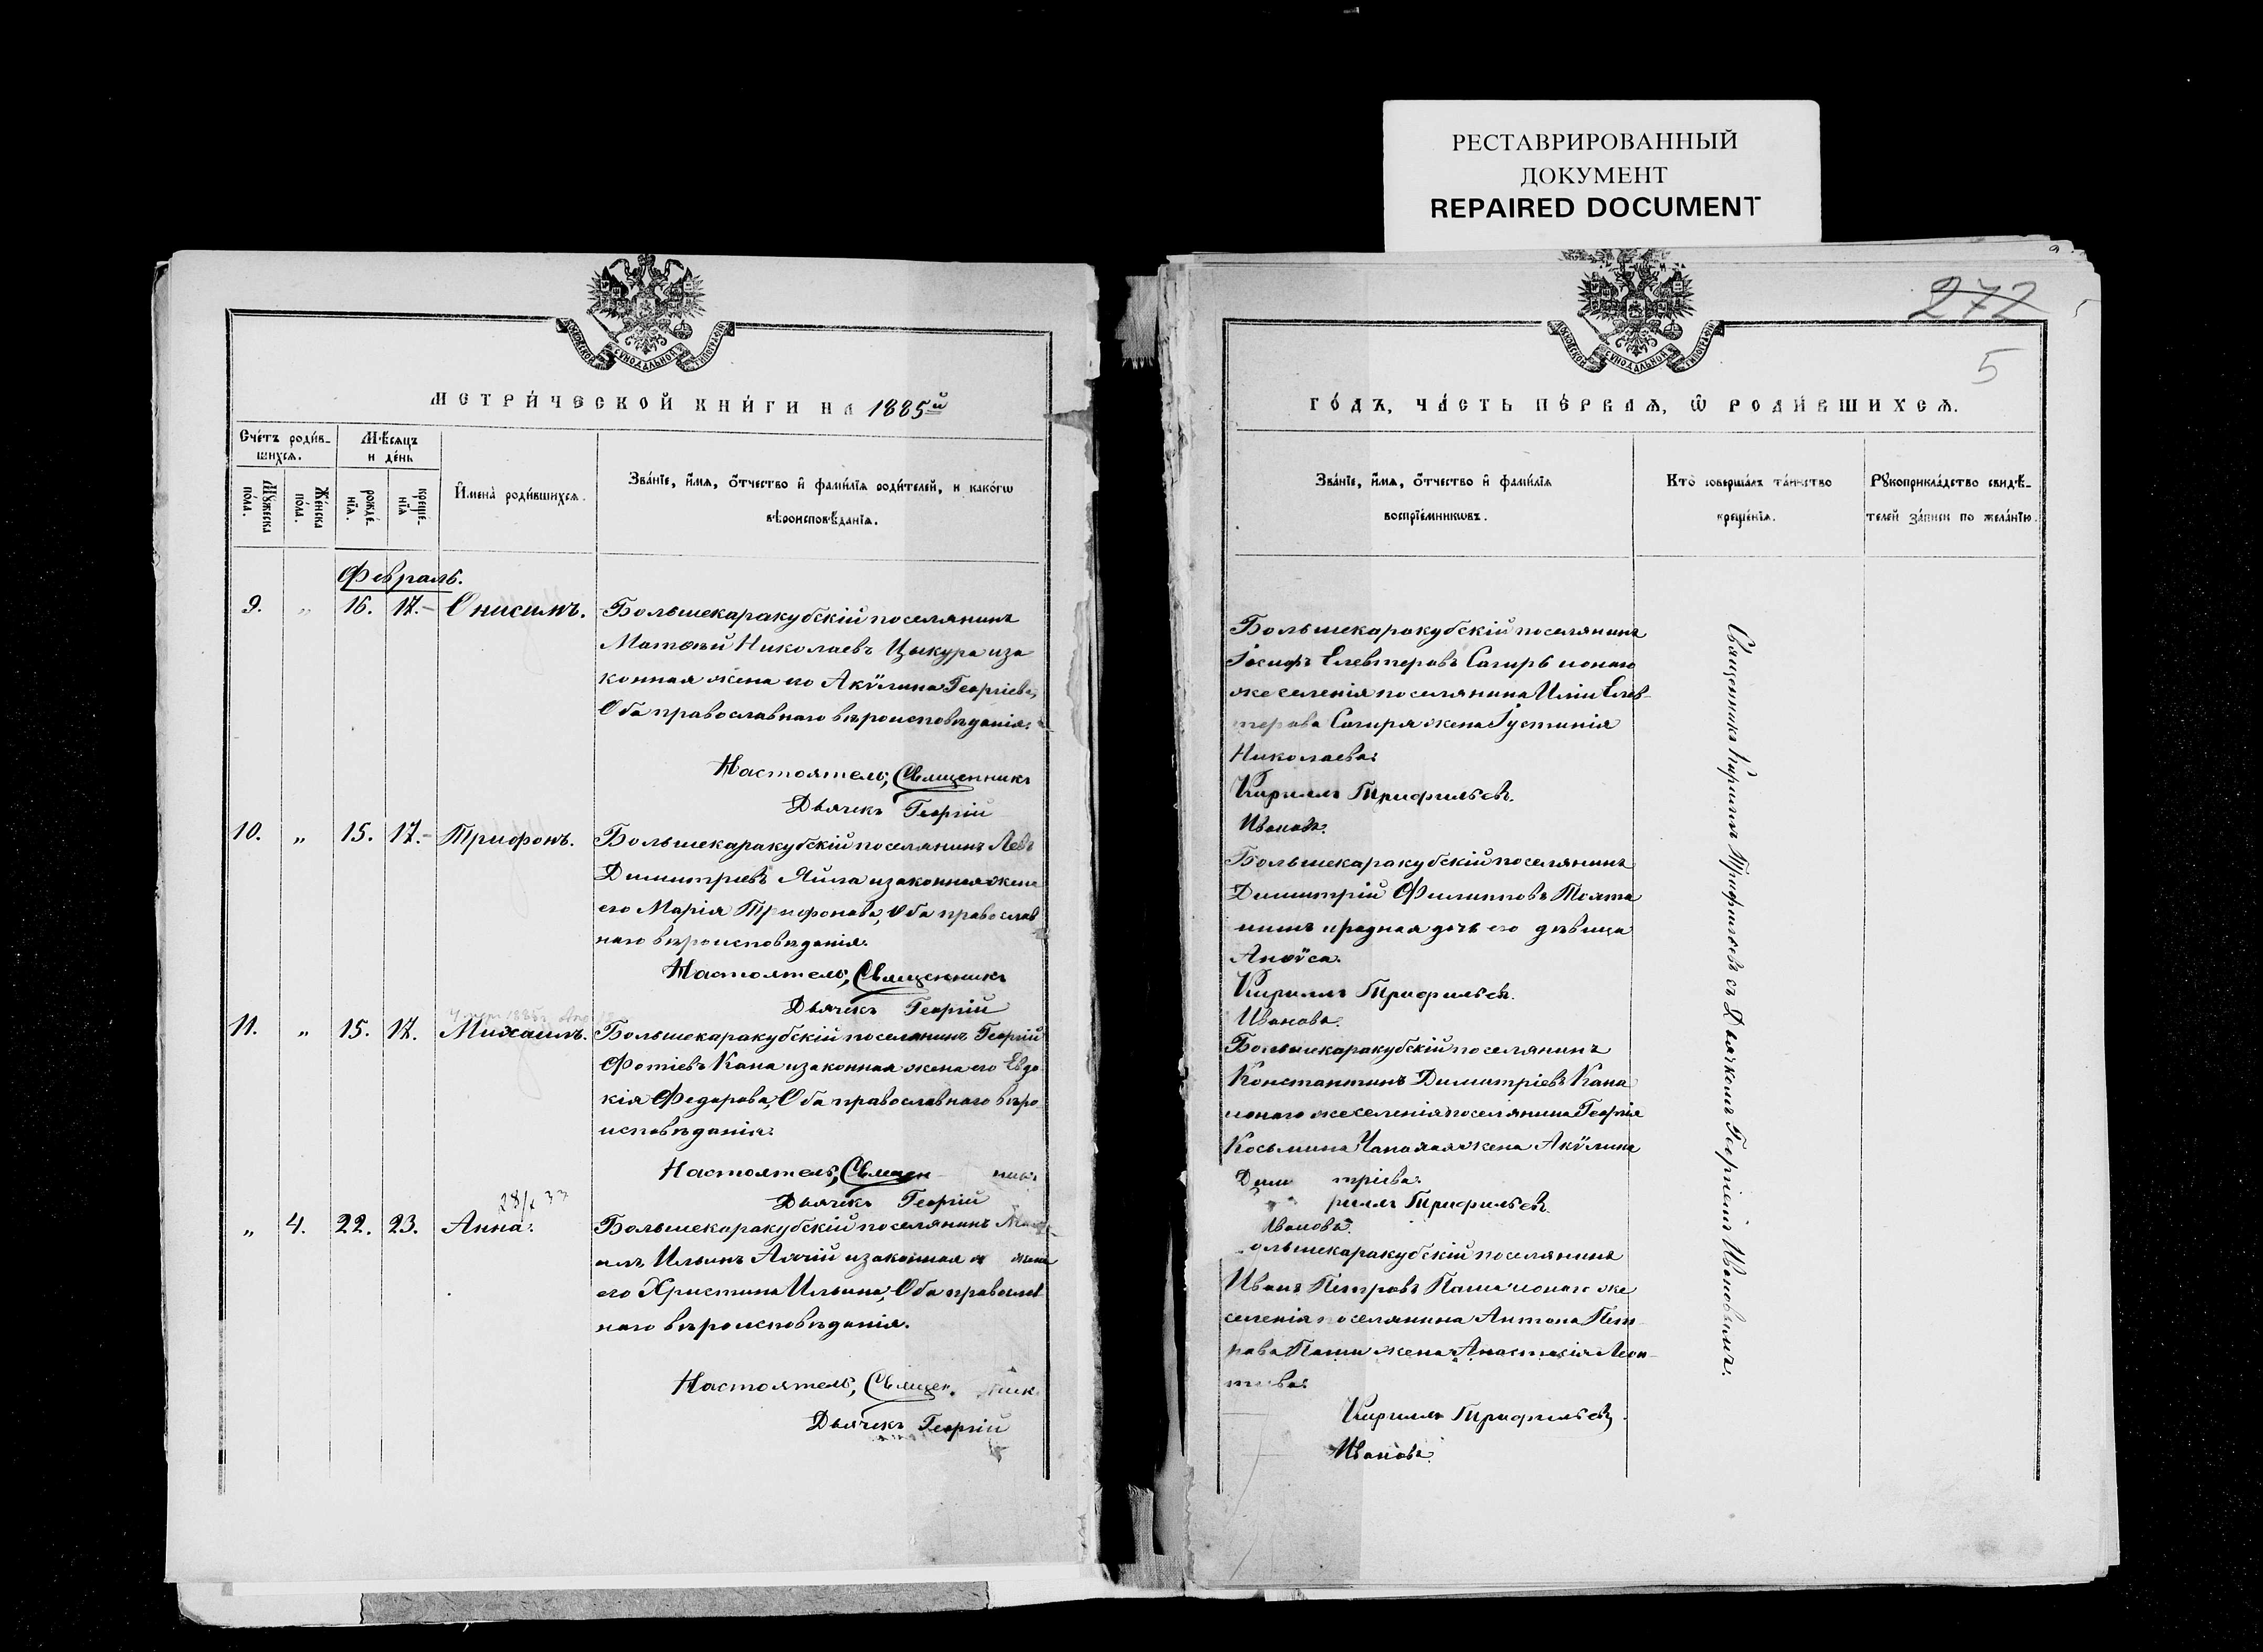 РЕСТАВРИРОВАННЫЙ
ДОКУМЕНТ
REPAIRED DOCUMENT
МОСКОВСКОЙ СѴНОДАЛЬНОЙ ТИПОГРАФІИ
МЕТРИ́ЧЕСКОЙ КНИ́ГИ НА 1885й
Сче́тъ роди́в-
шихсѧ.
Мѣ́сѧцъ
и де́нь
Мꙋ́жеска
по́ла.
Же́нска
по́ла.
рожде́-
нїѧ.
креще́-
нїѧ
И҆мена̀ роди́вшихсѧ.
Зва́нїе, и҆́мѧ, ѻ҆́тчество и҆ фами́лїѧ роди́телей, и како́гѡ
вѣроисповѣ́данїѧ.
Февраль.
9. „ 16. 17.– Онисимъ.
Большекаракубскій поселянинъ
Матѳей Николаевъ Цыкура иза
конная жена его Акѵлина Георгіева,
Оба православнаго вѣроисповѣданія.
Настоятель, Священникъ
Дьячекъ Георгій
10. „ 15. 17.– Трифонъ.
Большекаракубскій поселянинъ Левъ
Димитріевъ Яйла изаконная жена
его Марія Трифонова, Оба православ
наго вѣроисповѣданія.
Настоятель, Священникъ
Дьячекъ Георгій
11. „ 15. 17. Михаилъ.
Большекаракубскій поселянинъ Георгій
Фотіевъ Кана изаконная жена его Евдо
кія Федорова, Оба православнаго вѣро
исповѣданія.
Настоятель, Священ никъ
Дьячекъ Георгій
„ 4. 22. 23. Анна.
Большекаракубскій поселянинъ
Ильинъ изаконная жена
его Христина Ильина, Оба православ
наго вѣроисповѣданія.
Настоятель, Священ никъ
Дьячекъ Георгій
272
5
МОСКОВСКОЙ СѴНОДАЛЬНОЙ ТИПОГРАФІИ
ГО́ДЪ, ЧА́СТЬ ПЕ́РВАѦ, Ѡ҆ РОДИ́ВШИХСѦ.
Зва́нїе, и҆́мѧ, ѻ҆́тчество и҆ фами́лїѧ
воспрїе́мникѡвъ.
Кто̀ соверша́лъ та́инство
креще́нїѧ.
Рꙋкоприкла́дство свидѣ́-
телей за́писи по жела́нїю.
Большекаракубскій поселянинъ
Іосифъ Елевтеровъ Сагиръ ионаго
же селенія поселянина Иліи Елев-
терова Сагиря жена Іустинія
Николаева.
Кириллъ Трифильевъ.
Ивановъ.
Большекаракубскій поселянинъ
Димитрій Филипповъ Тохта
мышъ ироднаядочь его дѣвица
Анѳѵса.
Кириллъ Трифильевъ.
Ивановъ.
Большекаракубскій поселянинъ
Константинъ Димитріевъ Кана
ионаго жеселенія поселянина Георгія
Косьмина жена Акѵлина
Дими тріева.
риллъ Трифильевъ.
Ивановъ.
ольшекаракубскій поселянинъ
Иванъ Петровъ Паша ионаго же
селенія поселянина Антона Пет
рова Паши жена Анастасія Леон-
тьева.
Кириллъ Трифильевъ
Ивановъ.
Священникъ Кириллъ Трифильевъ съ Дьячкомъ Георгіемъ Ивановымъ.